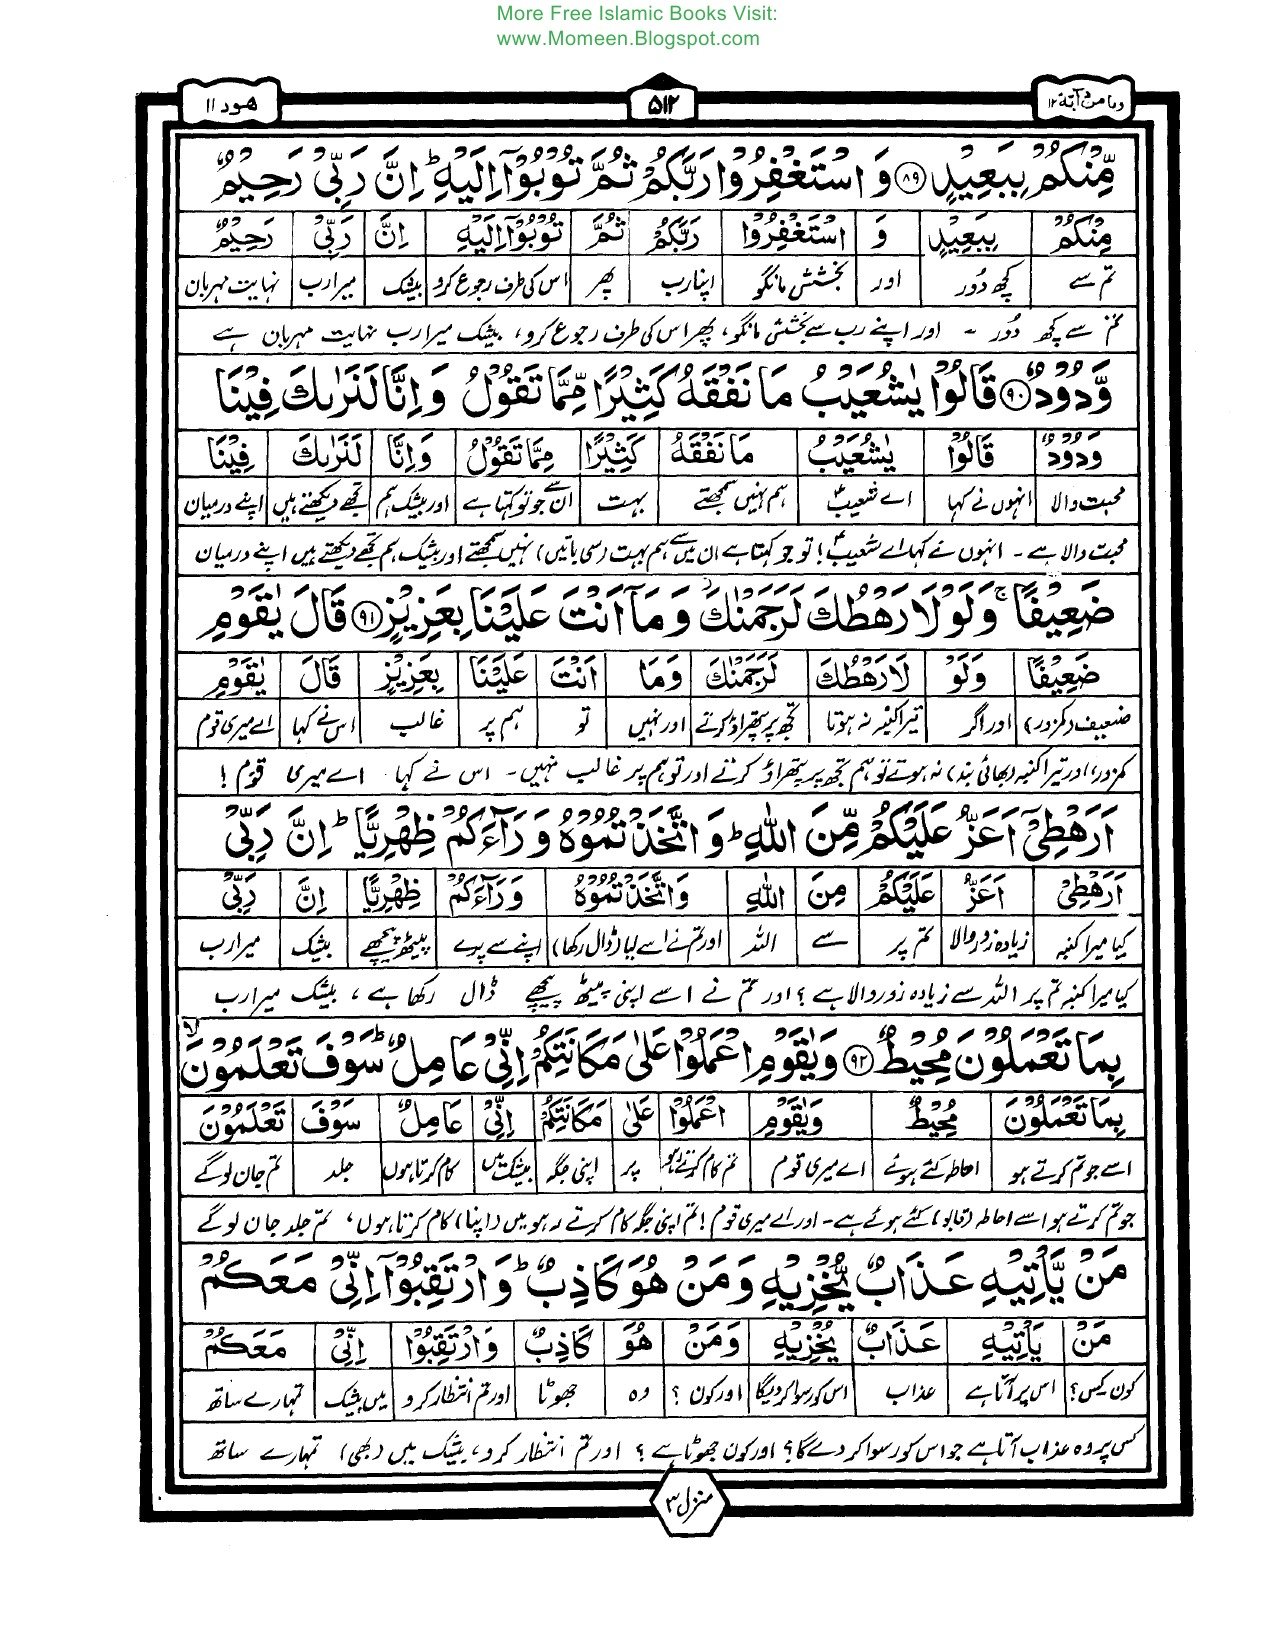 More Free Islamic Books Visit:
www.Momeen.Blogspot.com
وما من دآبة ١٢
٥١٢
هود ١١
مِّنْكُمْ بِبَعِيْدٍ ﴿۸۹﴾ وَ اسْتَغْفِرُوْا رَبَّكُمْ ثُمَّ تُوْبُوْۤا اِلَيْهِ ؕ اِنَّ رَبِّيْ رَحِيْمٌ
مِنْكُمْ بِبَعِيْدٍ وَ اسْتَغْفِرُوْا رَبَّكُمْ ثُمَّ تُوْبُوْۤا اِلَيْهِ اِنَّ رَبِّيْ رَحِيْمٌ
تم سے کچھ دُور اور بخشش مانگو اپنا رب پھر اس کی طرف رجوع کرو بیشک میرا رب نہایت مہربان
تم سے کچھ دُور ۔ اور اپنے رب سے بخشش مانگو، پھر اس کی طرف رجوع کرو، بیشک میرا رب نہایت مہربان ہے
وَّدُوْدٌ ﴿۹۰﴾ قَالُوْا يٰشُعَيْبُ مَا نَفْقَهُ كَثِيْرًا مِّمَّا تَقُوْلُ وَ اِنَّا لَنَرٰىكَ فِيْنَا
وَدُوْدٌ قَالُوْا يٰشُعَيْبُ مَا نَفْقَهُ كَثِيْرًا مِمَّا تَقُوْلُ وَ اِنَّا لَنَرٰىكَ فِيْنَا
محبت والا انہوں نے کہا اے شعیبؑ ہم نہیں سمجھتے بہت ان سے جو تو کہتا ہے اور بیشک ہم تجھے دیکھتے ہیں اپنے درمیان
محبت والا ہے ۔ انہوں نے کہا اے شعیبؑ! تو جو کہتا ہے ان میں سے ہم بہت (سی باتیں) نہیں سمجھتے اور بیشک ہم تجھے دیکھتے ہیں اپنے درمیان
ضَعِيْفًا ۚ وَ لَوْ لَا رَهْطُكَ لَرَجَمْنٰكَ ۫ وَ مَاۤ اَنْتَ عَلَيْنَا بِعَزِيْزٍ ﴿۹۱﴾ قَالَ يٰقَوْمِ
ضَعِيْفًا وَلَوْ لَا رَهْطُكَ لَرَجَمْنٰكَ وَمَا اَنْتَ عَلَيْنَا بِعَزِيْزٍ قَالَ يٰقَوْمِ
ضعیف (کمزور) اور اگر تیرا کنبہ نہ ہوتا تجھ پر پتھراؤ کرتے اور نہیں تو ہم پر غالب اس نے کہا اے میری قوم
کمزور، اور تیرا کنبہ (بھائی بند) نہ ہوتے تو ہم تجھ پر پتھراؤ کرتے اور تو ہم پر غالب نہیں ۔ اس نے کہا اے میری قوم !
اَرَهْطِيْۤ اَعَزُّ عَلَيْكُمْ مِّنَ اللّٰهِ ؕ وَ اتَّخَذْتُمُوْهُ وَرَآءَكُمْ ظِهْرِيًّا ؕ اِنَّ رَبِّيْ
اَرَهْطِيْ اَعَزُّ عَلَيْكُمْ مِنَ اللّٰهِ وَاتَّخَذْتُمُوْهُ وَرَآءَكُمْ ظِهْرِيًّا اِنَّ رَبِّيْ
کیا میرا کنبہ زیادہ زور والا تم پر سے اللہ اور تم نے اسے لیا (ڈال رکھا) اپنے سے پرے پیٹھ پیچھے بیشک میرا رب
کیا میرا کنبہ تم پر اللہ سے زیادہ زور والا ہے ؟ اور تم نے اسے اپنی پیٹھ پیچھے ڈال رکھا ہے ، بیشک میرا رب
بِمَا تَعْمَلُوْنَ مُحِيْطٌ ﴿۹۲﴾ وَ يٰقَوْمِ اعْمَلُوْا عَلٰى مَكَانَتِكُمْ اِنِّيْ عَامِلٌ ؕ سَوْفَ تَعْلَمُوْنَ ۙ
بِمَا تَعْمَلُوْنَ مُحِيْطٌ وَيٰقَوْمِ اعْمَلُوْا عَلٰى مَكَانَتِكُمْ اِنِّيْ عَامِلٌ سَوْفَ تَعْلَمُوْنَ
اسے جو تم کرتے ہو احاطہ کئے ہوئے اے میری قوم تم کام کرتے رہو پر اپنی جگہ بیشک میں کام کرتا ہوں جلد تم جان لوگے
جو تم کرتے ہو اسے احاطہ (قابو) کئے ہوئے ہے ۔ اور اے میری قوم ! تم اپنی جگہ کام کرتے رہو میں (اپنا) کام کرتا ہوں ، تم جلد جان لوگے
مَنْ يَّاْتِيْهِ عَذَابٌ يُّخْزِيْهِ وَ مَنْ هُوَ كَاذِبٌ ؕ وَ ارْتَقِبُوْۤا اِنِّيْ مَعَكُمْ
مَنْ يَاْتِيْهِ عَذَابٌ يُخْزِيْهِ وَمَنْ هُوَ كَاذِبٌ وَارْتَقِبُوْا اِنِّيْ مَعَكُمْ
کون کس ؟ اس پر آتا ہے عذاب اس کو رسوا کر دیگا اور کون ؟ وہ جھوٹا اور تم انتظار کرو میں بیشک تمہارے ساتھ
کس پر وہ عذاب آتا ہے جو اس کو رسوا کر دے گا ؟ اور کون جھوٹا ہے ؟ اور تم انتظار کرو ، بیشک میں (بھی) تمہارے ساتھ
منزل ٣